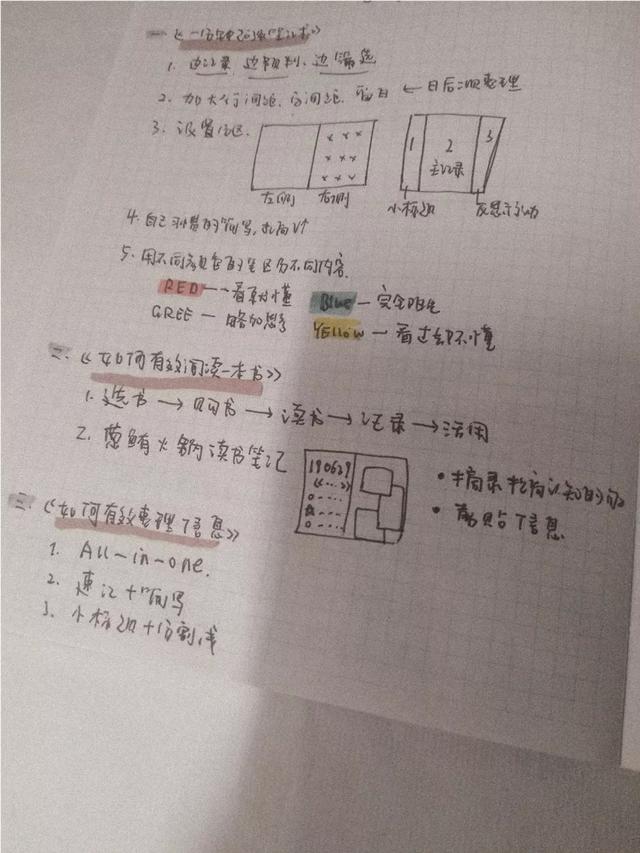 一.《一份
1. 边记录 边预判、边筛选
2. 加大行间距、字间距、留白 ← 日后二次整理
3. 设置分区
x x x
x x x
x x x
左侧 右侧
1 2 3
主记录
小标题 反思与行动
4. 自己习惯的简写,提高V↑
5. 用不同颜色的笔区分不同内容.
RED — 看素材懂 Blue — 完全陌生
GREE — 略加思考 YEllow — 看过却不懂
二.《如何有效阅读一本书》
1. 选书 → 购书 → 读书 → 记录 → 活用
2. 葱鲔火锅读书笔记
190629
《...》
• 摘录提高认知的句
• 剪贴信息
三.《如何有效整理信息》
1. All-in-one.
2. 速记+简写
3. 小标题+分割线